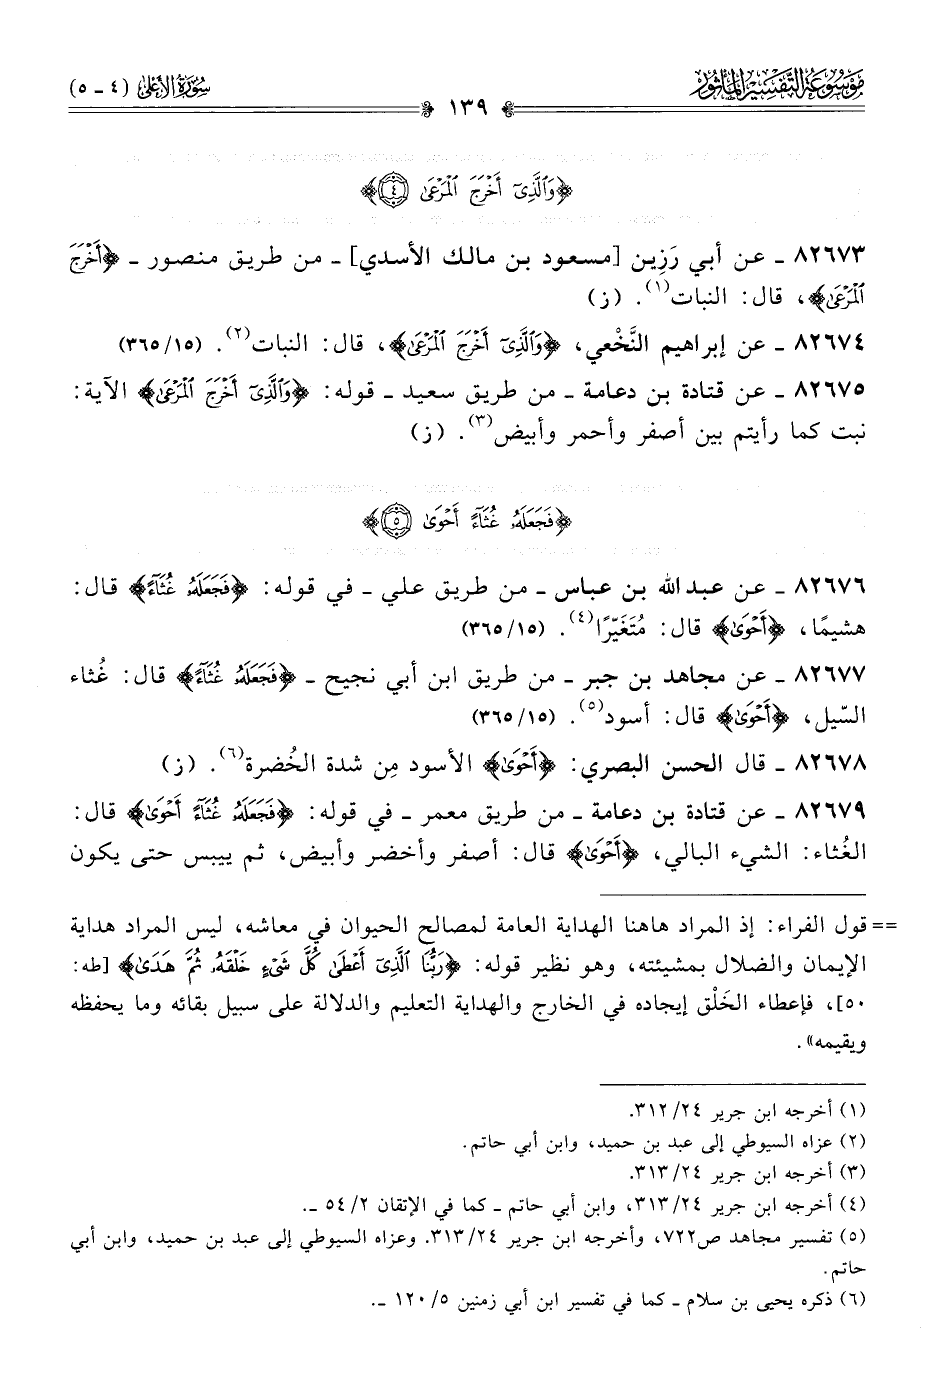 موسوعة التفسير المأثور
سورة الأعلى (٤ - ٥)
١٣٩
﴿وَالَّذِىٓ أَخْرَجَ الْمَرْعَىٰ ٤﴾
٨٢٦٧٣ - عن أبي رَزِين [مسعود بن مالك الأسدي] - من طريق منصور - ﴿أَخْرَجَ
الْمَرْعَىٰ﴾، قال: النبات(١). (ز)
٨٢٦٧٤ - عن إبراهيم النَّخْعي، ﴿وَالَّذِىٓ أَخْرَجَ الْمَرْعَىٰ﴾، قال: النبات(٢). (٣٦٥/١٥)
٨٢٦٧٥ - عن قتادة بن دعامة - من طريق سعيد - قوله: ﴿وَالَّذِىٓ أَخْرَجَ الْمَرْعَىٰ﴾ الآية:
نبت كما رأيتم بين أصفر وأحمر وأبيض(٣). (ز)
﴿فَجَعَلَهُۥ غُثَآءً أَحْوَىٰ ٥﴾
٨٢٦٧٦ - عن عبد الله بن عباس - من طريق علي - في قوله: ﴿فَجَعَلَهُۥ غُثَآءً﴾ قال:
هشيمًا، ﴿أَحْوَىٰ﴾ قال: مُتَغَيّرًا(٤). (٣٦٥/١٥)
٨٢٦٧٧ - عن مجاهد بن جبر - من طريق ابن أبي نجيح - ﴿فَجَعَلَهُۥ غُثَآءً﴾ قال: غُثاء
السّيل، ﴿أَحْوَىٰ﴾ قال: أسود(٥). (٣٦٥/١٥)
٨٢٦٧٨ - قال الحسن البصري: ﴿أَحْوَىٰ﴾ الأسود مِن شدة الخُضرة(٦). (ز)
٨٢٦٧٩ - عن قتادة بن دعامة - من طريق معمر - في قوله: ﴿فَجَعَلَهُۥ غُثَآءً أَحْوَىٰ﴾ قال:
الغُثاء: الشيء البالي، ﴿أَحْوَىٰ﴾ قال: أصفر وأخضر وأبيض، ثم ييبس حتى يكون
== قول الفراء: إذ المراد هاهنا الهداية العامة لمصالح الحيوان في معاشه، ليس المراد هداية
الإيمان والضلال بمشيئته، وهو نظير قوله: ﴿رَبُّنَا الَّذِىٓ أَعْطَىٰ كُلَّ شَىْءٍ خَلْقَهُۥ ثُمَّ هَدَىٰ﴾ [طه:
٥٠]، فإعطاء الخَلْق إيجاده في الخارج والهداية التعليم والدلالة على سبيل بقائه وما يحفظه
ويقيمه».
(١) أخرجه ابن جرير ٣١٢/٢٤.
(٢) عزاه السيوطي إلى عبد بن حميد، وابن أبي حاتم.
(٣) أخرجه ابن جرير ٣١٣/٢٤.
(٤) أخرجه ابن جرير ٣١٣/٢٤، وابن أبي حاتم - كما في الإتقان ٥٤/٢ -.
(٥) تفسير مجاهد ص٧٢٢، وأخرجه ابن جرير ٣١٣/٢٤. وعزاه السيوطي إلى عبد بن حميد، وابن أبي
حاتم.
(٦) ذكره يحيى بن سلام - كما في تفسير ابن أبي زمنين ١٢٠/٥ -.